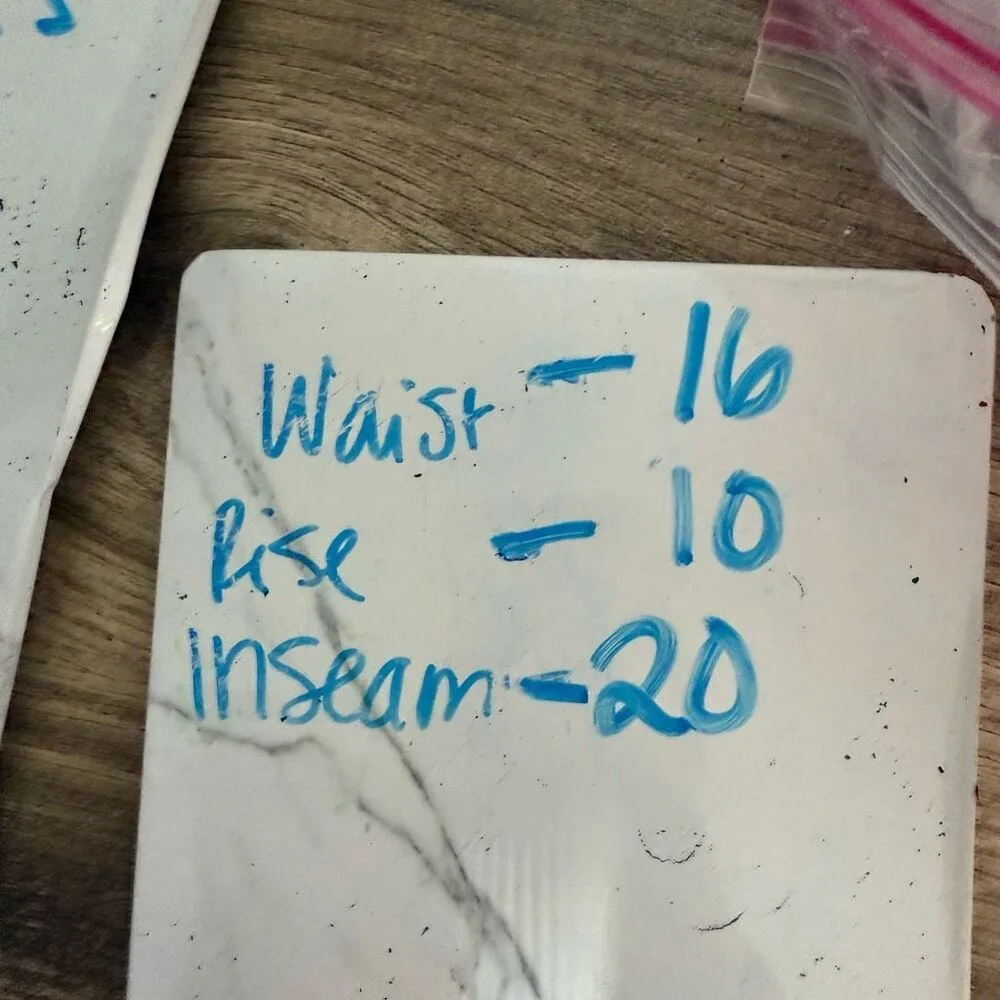 Waist - 16
Rise - 10
Inseam - 20